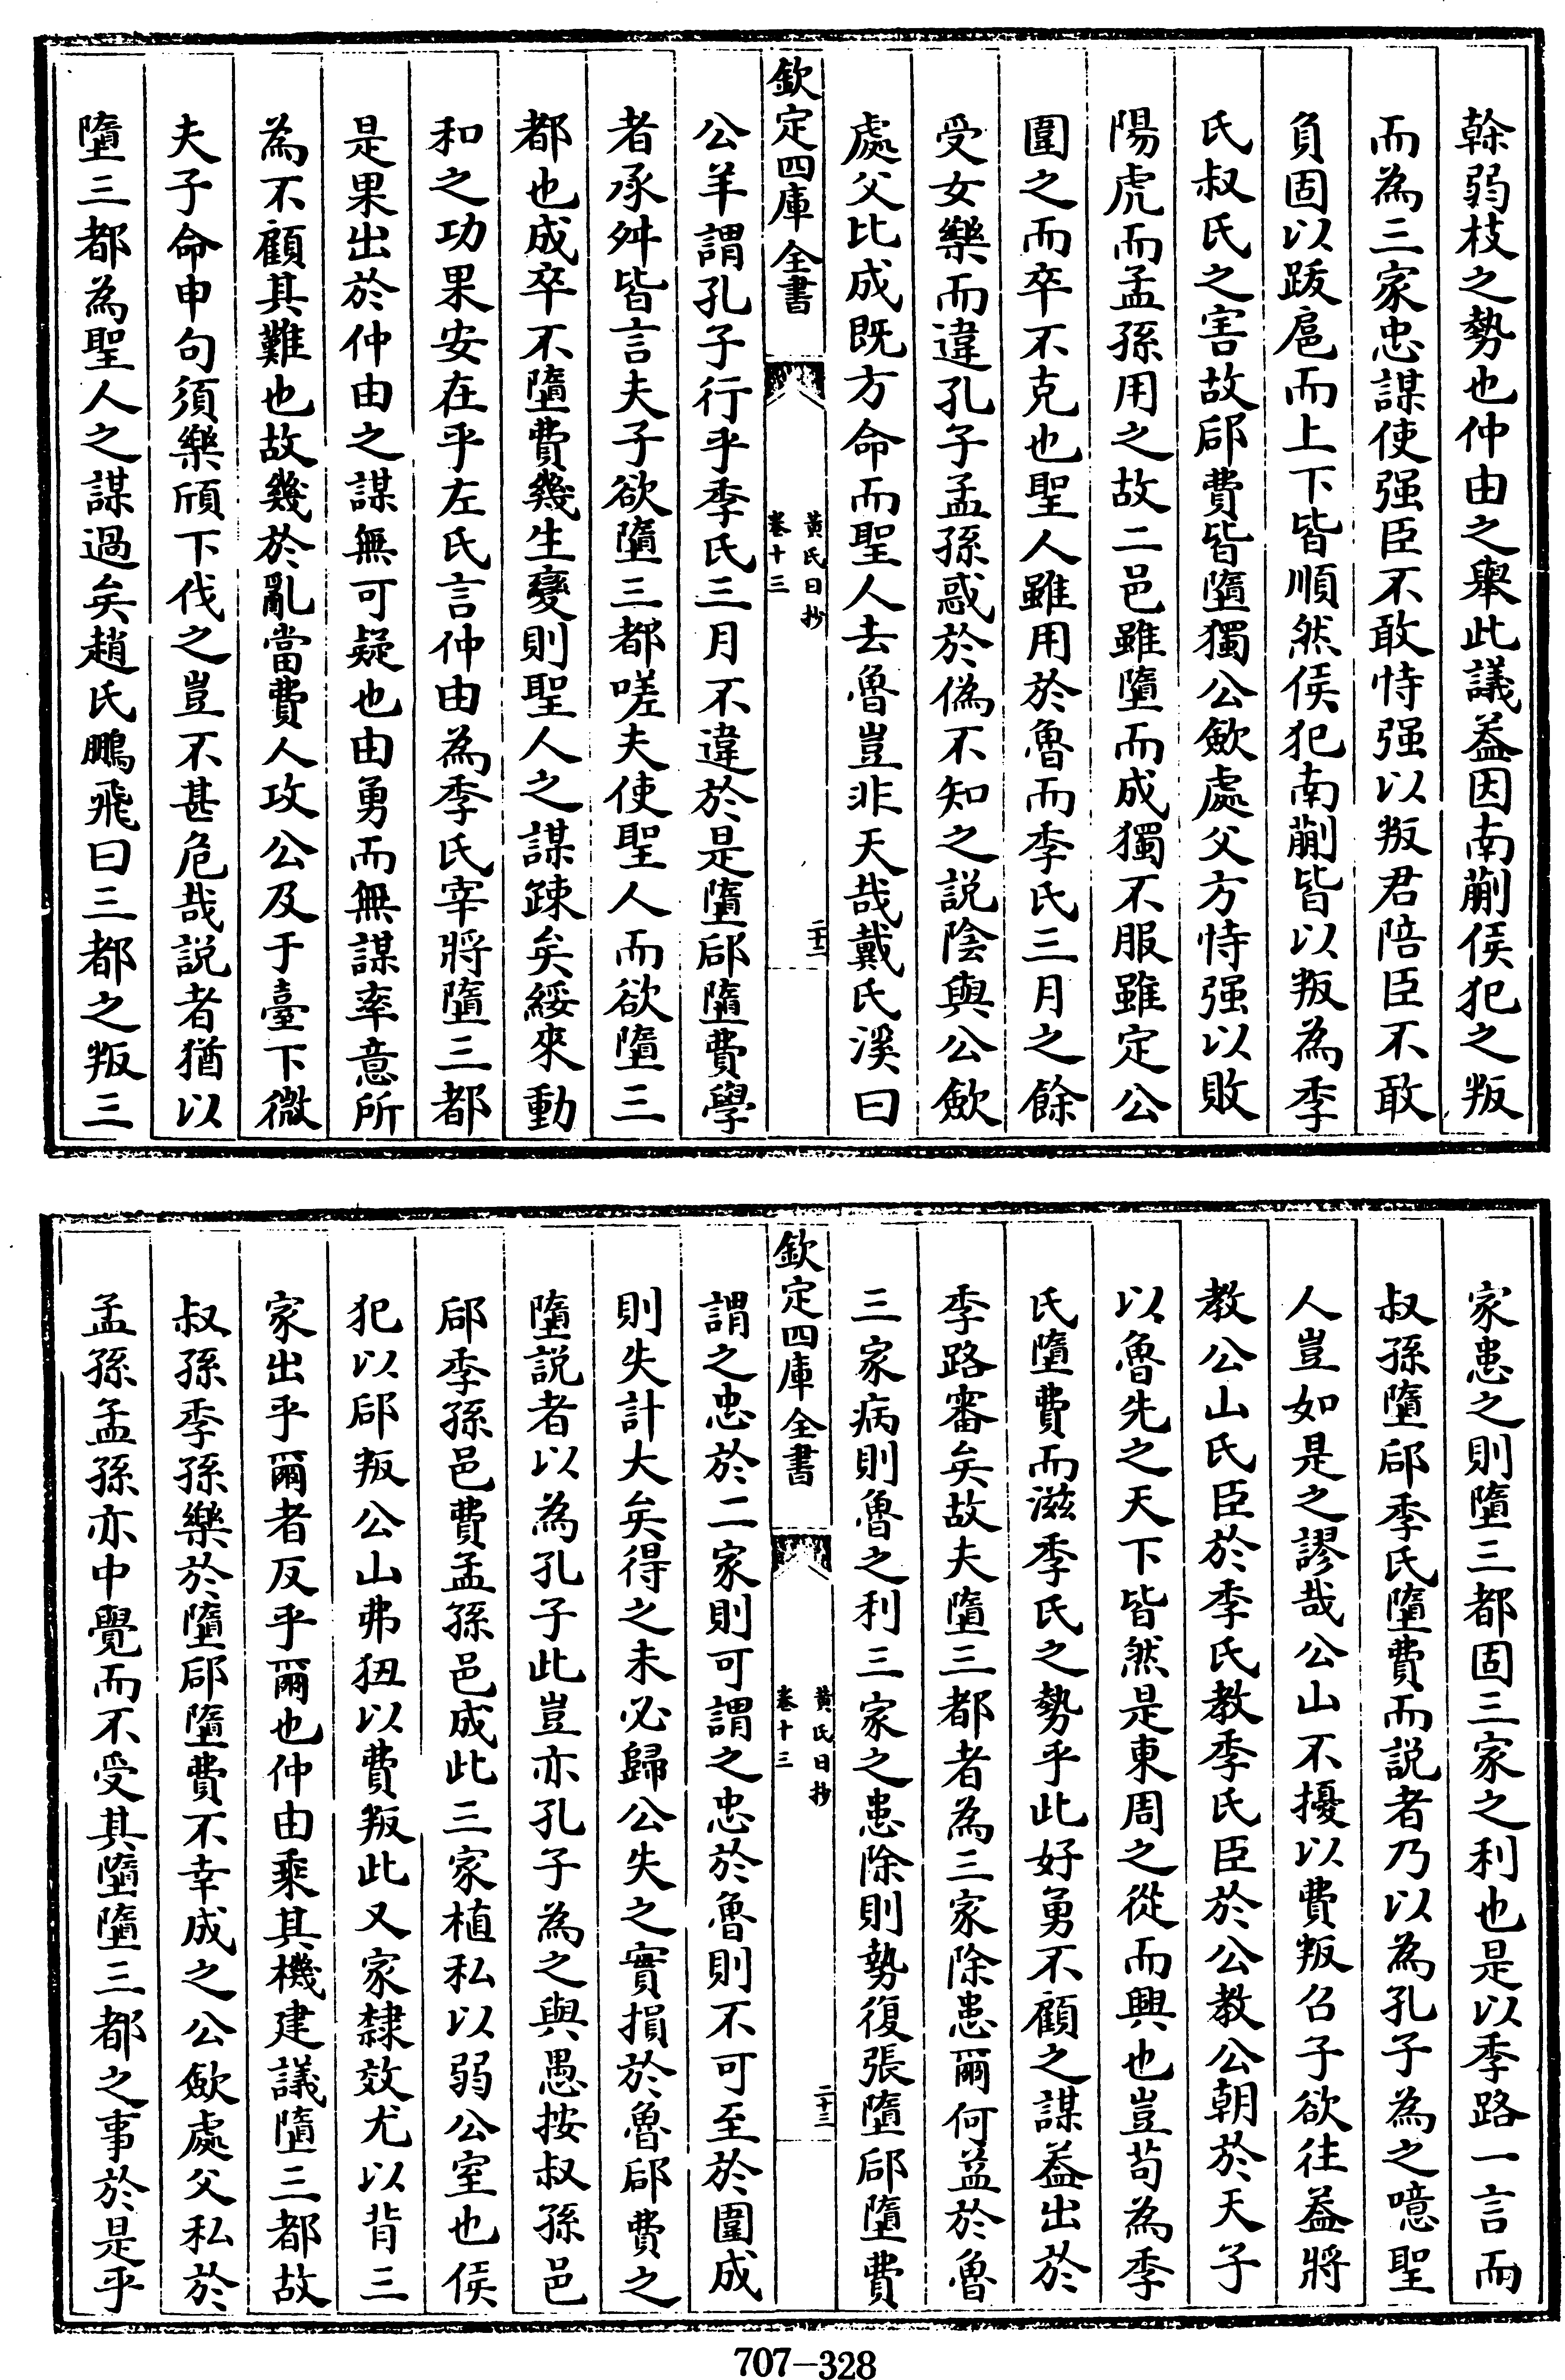 榦弱枝之勢也仲由之舉此議葢因南蒯侯犯之叛
而為三家忠謀使强臣不敢恃强以叛君陪臣不敢
負固以跋扈而上下皆順然侯犯南蒯皆以叛為季
氏叔氏之害故郈費皆墮獨公歛處父方恃强以敗
陽虎而孟孫用之故二邑雖墮而成獨不服雖定公
圍之而卒不克也聖人雖用於魯而季氏三月之餘
受女樂而違孔子孟孫惑於偽不知之説陰與公歛
處父比成既方命而聖人去魯豈非天哉戴氏溪曰
欽定四庫全書
黃氏日抄
卷十三
二十二
公羊謂孔子行乎季氏三月不違於是墮郈墮費學
者承舛皆言夫子欲墮三都嗟夫使聖人而欲墮三
都也成卒不墮費幾生變則聖人之謀疎矣綏來動
和之功果安在乎左氏言仲由為季氏宰將墮三都
是果出於仲由之謀無可疑也由勇而無謀率意所
為不顧其難也故幾於亂當費人攻公及于臺下微
夫子命申句須樂頎下伐之豈不甚危哉説者猶以
墮三都為聖人之謀過矣趙氏鵬飛曰三都之叛三
家患之則墮三都固三家之利也是以季路一言而
叔孫墮郈季氏墮費而説者乃以為孔子為之噫聖
人豈如是之謬哉公山不擾以費叛召子欲往葢將
教公山氏臣於季氏教季氏臣於公教公朝於天子
以魯先之天下皆然是東周之從而興也豈苟為季
氏墮費而滋季氏之勢乎此好勇不顧之謀葢出於
季路審矣故夫墮三都者為三家除患爾何益於魯
三家病則魯之利三家之患除則勢復張墮郈墮費
欽定四庫全書
黃氏日抄
卷十三
二十三
謂之忠於二家則可謂之忠於魯則不可至於圍成
則失計大矣得之未必歸公失之實損於魯郈費之
墮説者以為孔子此豈亦孔子為之與愚按叔孫邑
郈季孫邑費孟孫邑成此三家植私以弱公室也侯
犯以郈叛公山弗狃以費叛此又家隸效尤以背三
家出乎爾者反乎爾也仲由乘其機建議墮三都故
叔孫季孫樂於墮郈墮費不幸成之公歛處父私於
孟孫孟孫亦中覺而不受其墮墮三都之事於是乎
707-328